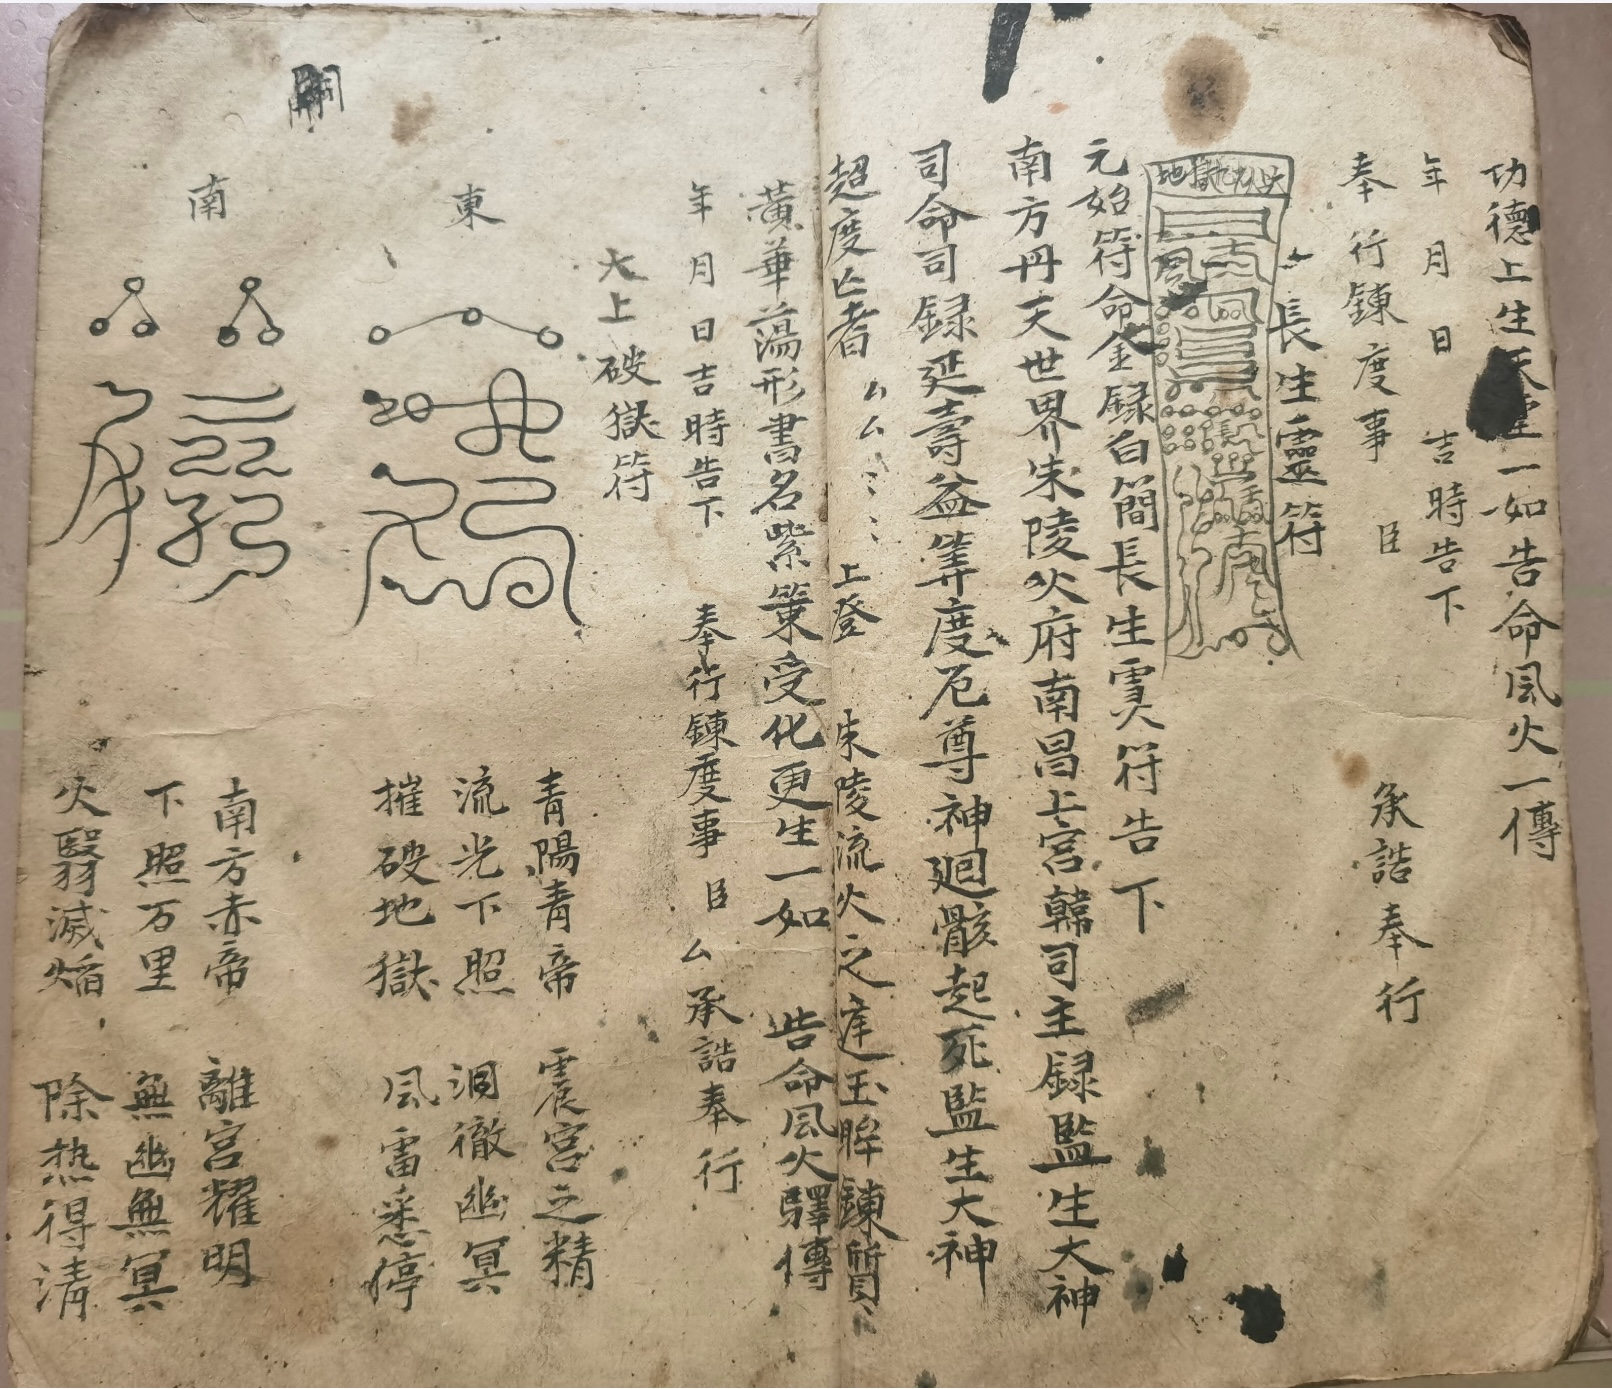 功德上生天堂一如告命風火一傳
年 月 日 吉時告下
奉行鍊度事 臣 承誥奉行
長生靈符
元始符命金録白簡長生灵符告下
南方丹天世界朱陵火府南昌上宮韓司主録監生大神
司命司録延壽益筭度厄尊神廻骸起死監生大神
超度亡者厶厶〻〻上登 朱陵流火之庭玉眸鍊質〻
黃華蕩形書名紫策受化更生一如 告命風火驛傳
年 月 日吉時告下 奉行鍊度事 臣 厶承誥奉行
太上破獄符
東
青陽青帝 震宮之精
流光下照 洞徹幽冥
摧破地獄 風雷悉停
南
南方赤帝 離宮耀明
下照万里 無幽無冥
火翳滅焰 除热得清